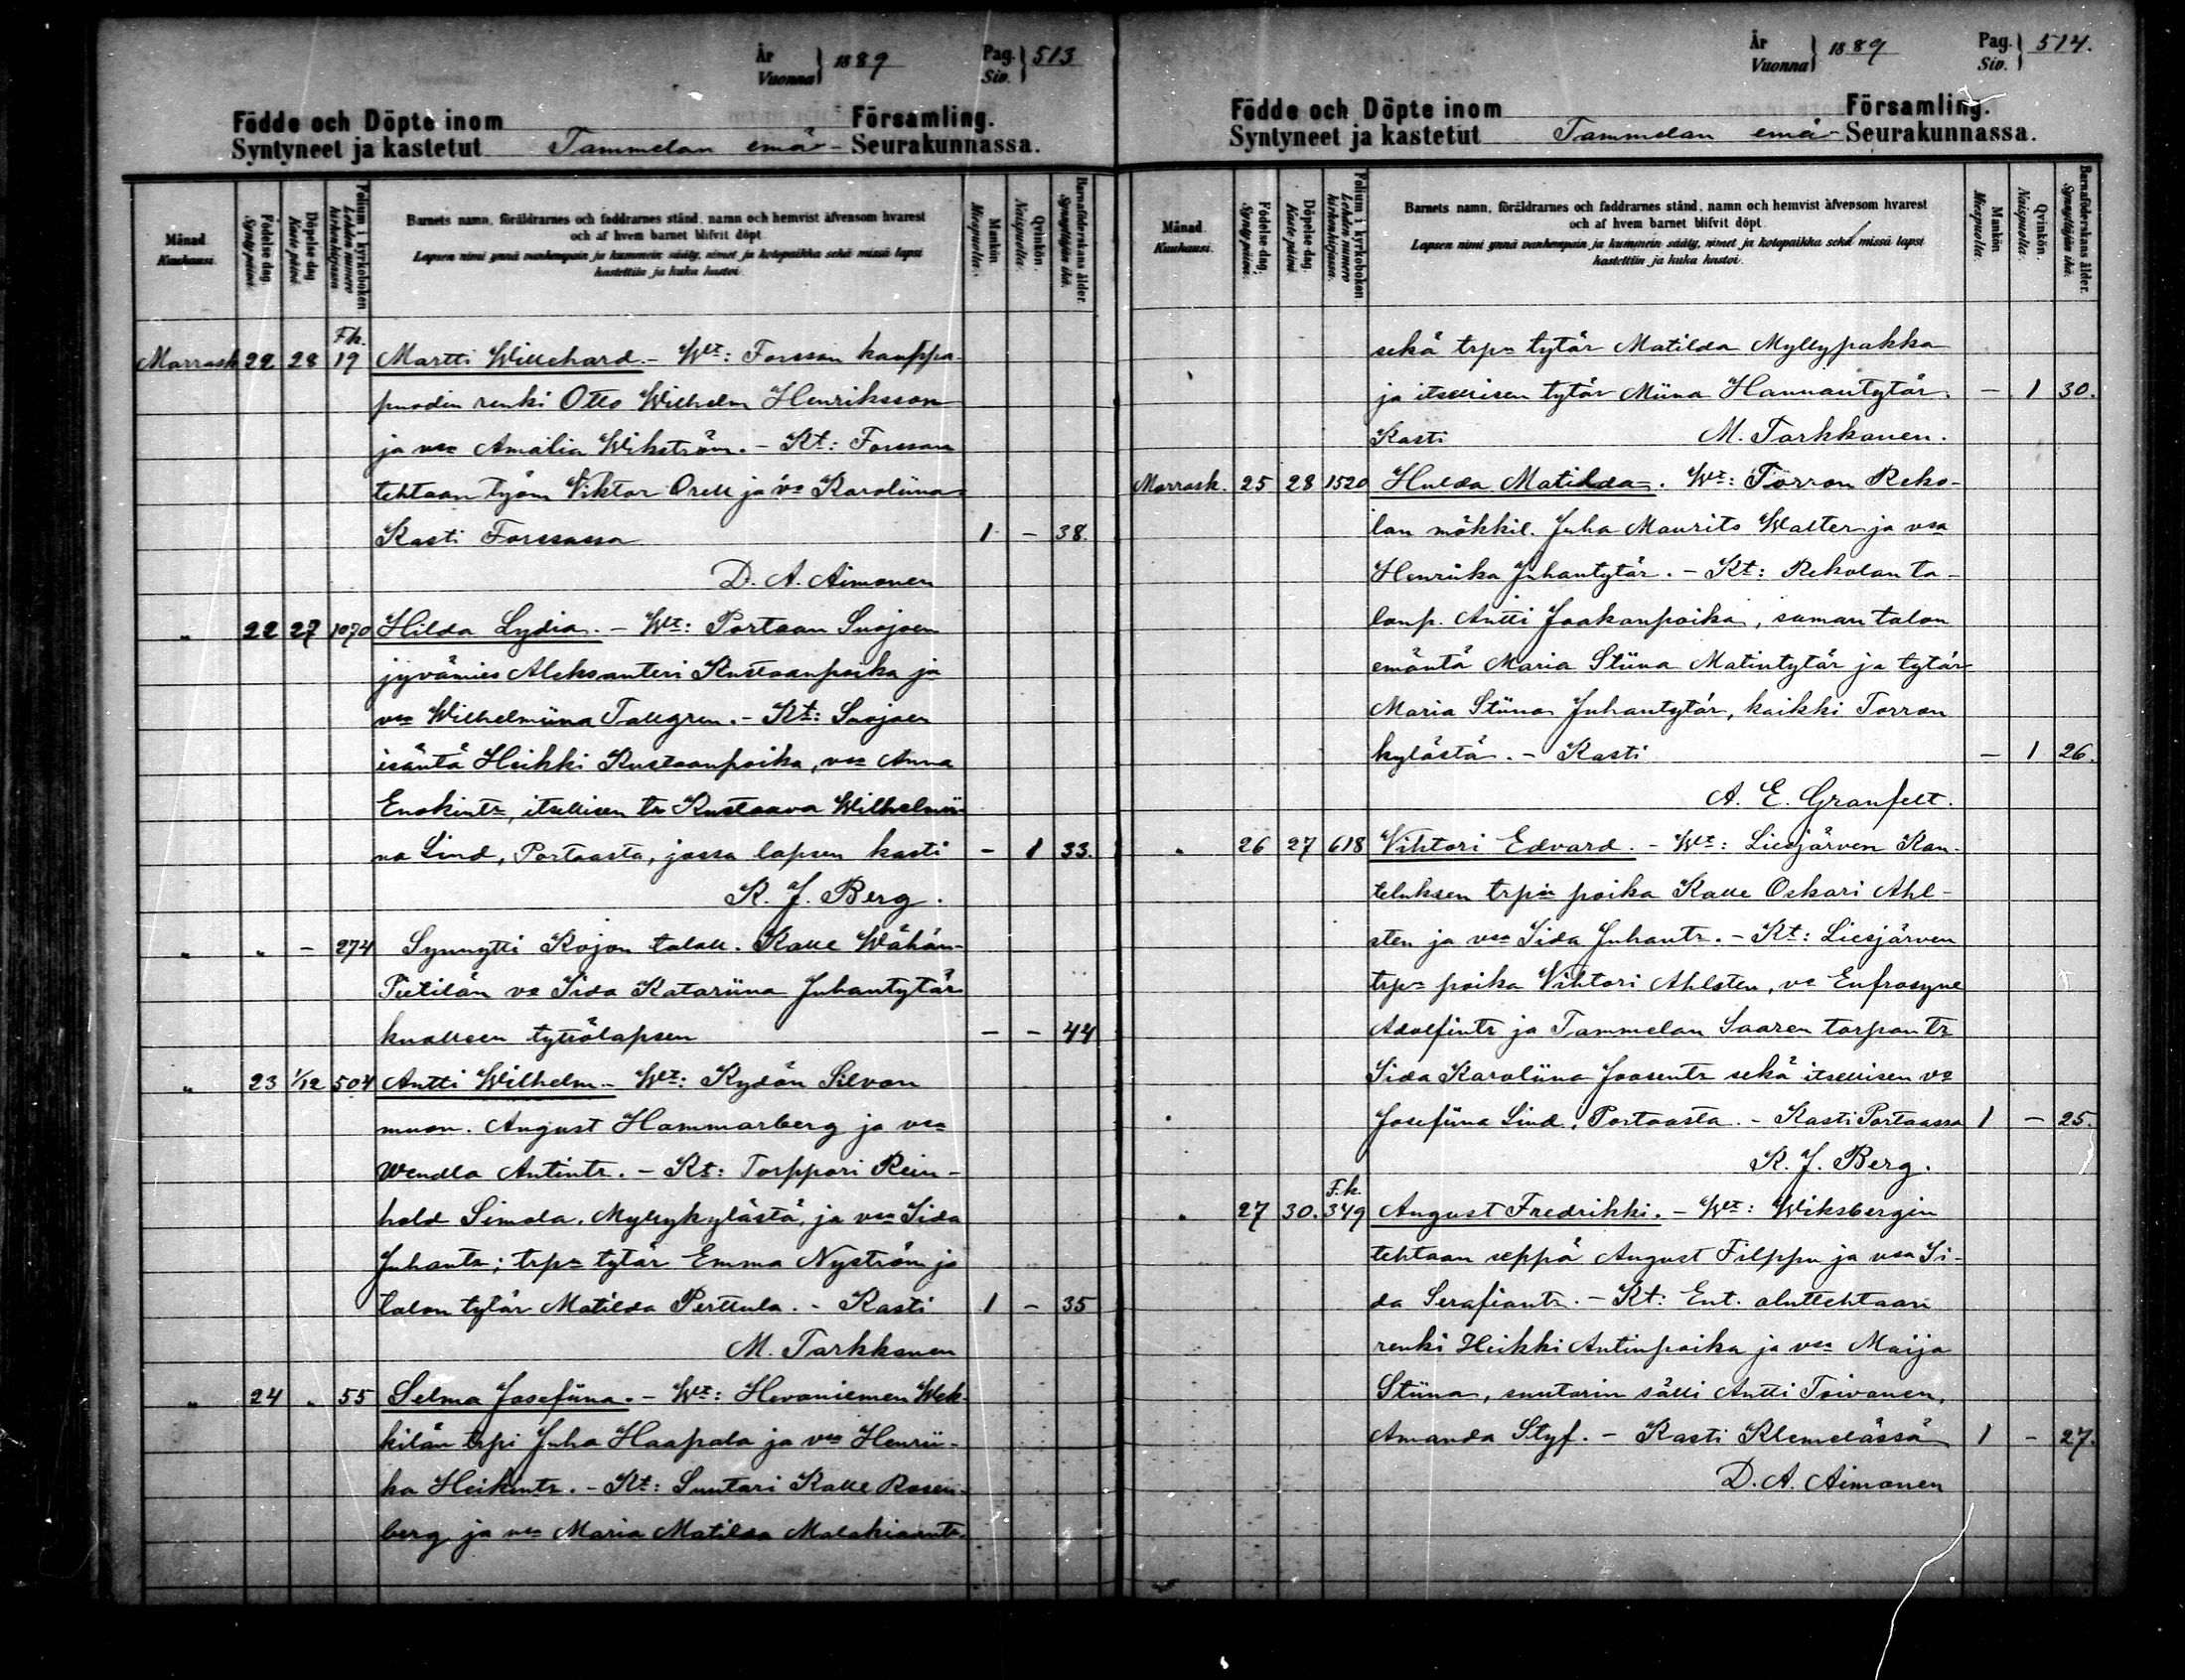 År
Vuonna } 1889
Pag.
Siv. } 513
Födde och Döpte inom Församling.
Syntyneet ja kastetut Tammelan emä- Seurakunnassa.
Månad
Kuuhausi.
Födelse dag.
Synty päivä.
Döpelse dag
Kaste päivä
Folium i kyrkoboken
Lehden numero
kirkonkirjassa
Barnets namn, föräldrarnes och faddrarnes stånd, namn och hemvist äfvensom hvarest
och af hvem barnet blifvit döpt.
Lapsen nimi ynnä vanhempain ja kummein sääty, nimet ja kotopaikka sekä missä lapsi
kastettiin ja kuka kastoi.
Mankön
Miespuolta.
Qvinkön.
Naispuolta.
Barnaföderskans ålder.
Synnyttäjän ikä.
F.k.
Marrask 22 28 19 Martti Willehard. - Wt: Forssan kauppa-
puodin renki Otto Wilhelm Henriksson
ja vsa Amalia Wikström. - Kt: Forssan
tehtaan työm Viktor Orell ja va Karoliina
Kasti Forssassa 1 - 38.
D. A. Aimonen
" 22 27 1070 Hilda Lydia. - Wt: Portaan Suojoen
jyvämies Aleksanteri Kustaanpoika ja
vsa Wilhelmiina Tallgren. - Kt: Suojoen
isäntä Heikki Kustaanpoika, vsa Anna
Enokintr, itsellisen tr Kustaava Wilhelmii-
na Lind, Portaasta, jossa lapsen kasti - 1 33.
K. J. Berg.
" " - 274 Synnytti Kojon talall. Kalle Wähän-
Pietilän va Iida Katariina Juhantytär
kuolleen tyttölapsen - - 44
" 23 1/12 504 Antti Wilhelm - Wt: Kydön Silvon
muon. August Hammarberg ja vsa
Wendla Antintr. - Kt: Torppari Rein-
hold Simola, Myllykylästä, ja vsa Iida
Juhantr; trpn tytär Emma Nyström ja
talon tytär Matilda Perttula. - Kasti 1 - 35
M. Tarkkanen
" 24 " 55 Selma Josefiina. - Wt: Hevoniemen Wek-
kilän trpi Juha Haapala ja vsa Henrii-
ka Heikintr. - Kt: Suutari Kalle Rosen-
berg ja vsa Maria Matilda Malakiaantr.
År
Vuonna } 1889
Pag.
Siv. } 514.
Födde och Döpte inom Församling.
Syntyneet ja kastetut Tammelan emä- Seurakunnassa.
Månad
Kuuhausi.
Födelse dag.
Synty päivä.
Döpelse dag.
Kaste päivä
Folium i kyrkoboken.
Lehden numero
kirkonkirjassa.
Barnets namn, föräldrarnes och faddrarnes stånd, namn och hemvist äfvensom hvarest
och af hvem barnet blifvit döpt.
Lapsen nimi ynnä vanhempain ja kummein sääty, nimet ja kotopaikka sekä missä lapsi
kastettiin ja kuka kastoi.
Mankön
Miespuolta.
Qvinkön.
Naispuolta.
Barnaföderskans ålder.
Synnyttäjän ikä.
sekä trpn tytär Matilda Myllypakka
ja itsellisen tytär Miina Hannantytär. - 1 30.
Kasti M. Tarkkanen.
Marrask. 25 28 1520 Hulda Matilda. Wt: Torron Reko-
lan mökkil. Juha Maurits Walter ja vsa
Henriika Juhantytär. - Kt: Rekolan ta-
lonp. Antti Jaakonpoika, saman talon
emäntä Maria Stiina Matintytär ja tytär
Maria Stiina Juhantytär, kaikki Torron
kylästä. - Kasti - 1 26.
A. E. Granfelt.
" 26 27 618 Vihtori Edvard. - Wt: Liesjärven Kan-
teluksen trpin poika Kalle Oskari Ahl-
sten ja vsa Iida Juhantr. - Kt: Liesjärven
trpn poika Vihtori Ahlsten, va Eufrosyne
Adolfintr ja Tammelan Saaren torpan tr
Iida Karoliina Joosentr sekä itsellisen va
Josefiina Lind, Portaasta. - Kasti Portaassa 1 - 25.
K. J. Berg.
F.k.
" 27 30. 349 August Fredrikki. - Wt: Wiksbergin
tehtaan seppä August Filppu ja vsa Ii-
da Serafiantr. - Kt: Ent. oluttehtaan
renki Heikki Antinpoika ja vsa Maija
Stiina, suutarin sälli Antti Toivonen,
Amanda Styf. - Kasti Klemelässä 1 - 27.
D. A. Aimonen